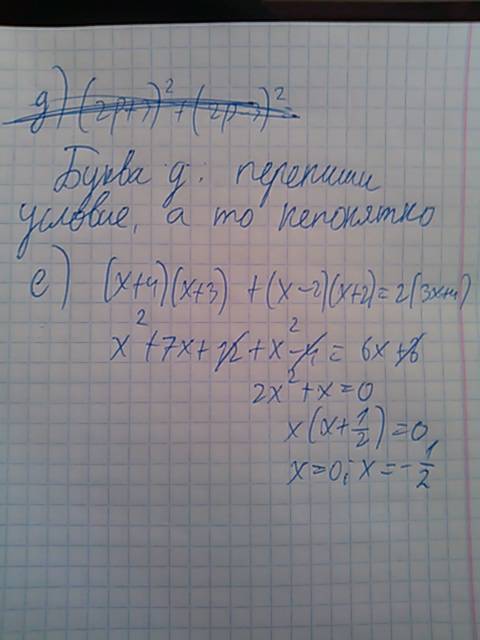 д) (2p+3)² + (2p-3)²
Буква д: перепиши
условие, а то непонятно
е) (x+4)(x+3) + (x-2)(x+2) = 2(3x+4)
x² + 7x + 12 + x² - 4 = 6x + 8
2x² + x = 0
x(x + 1/2) = 0
x = 0; x = -1/2